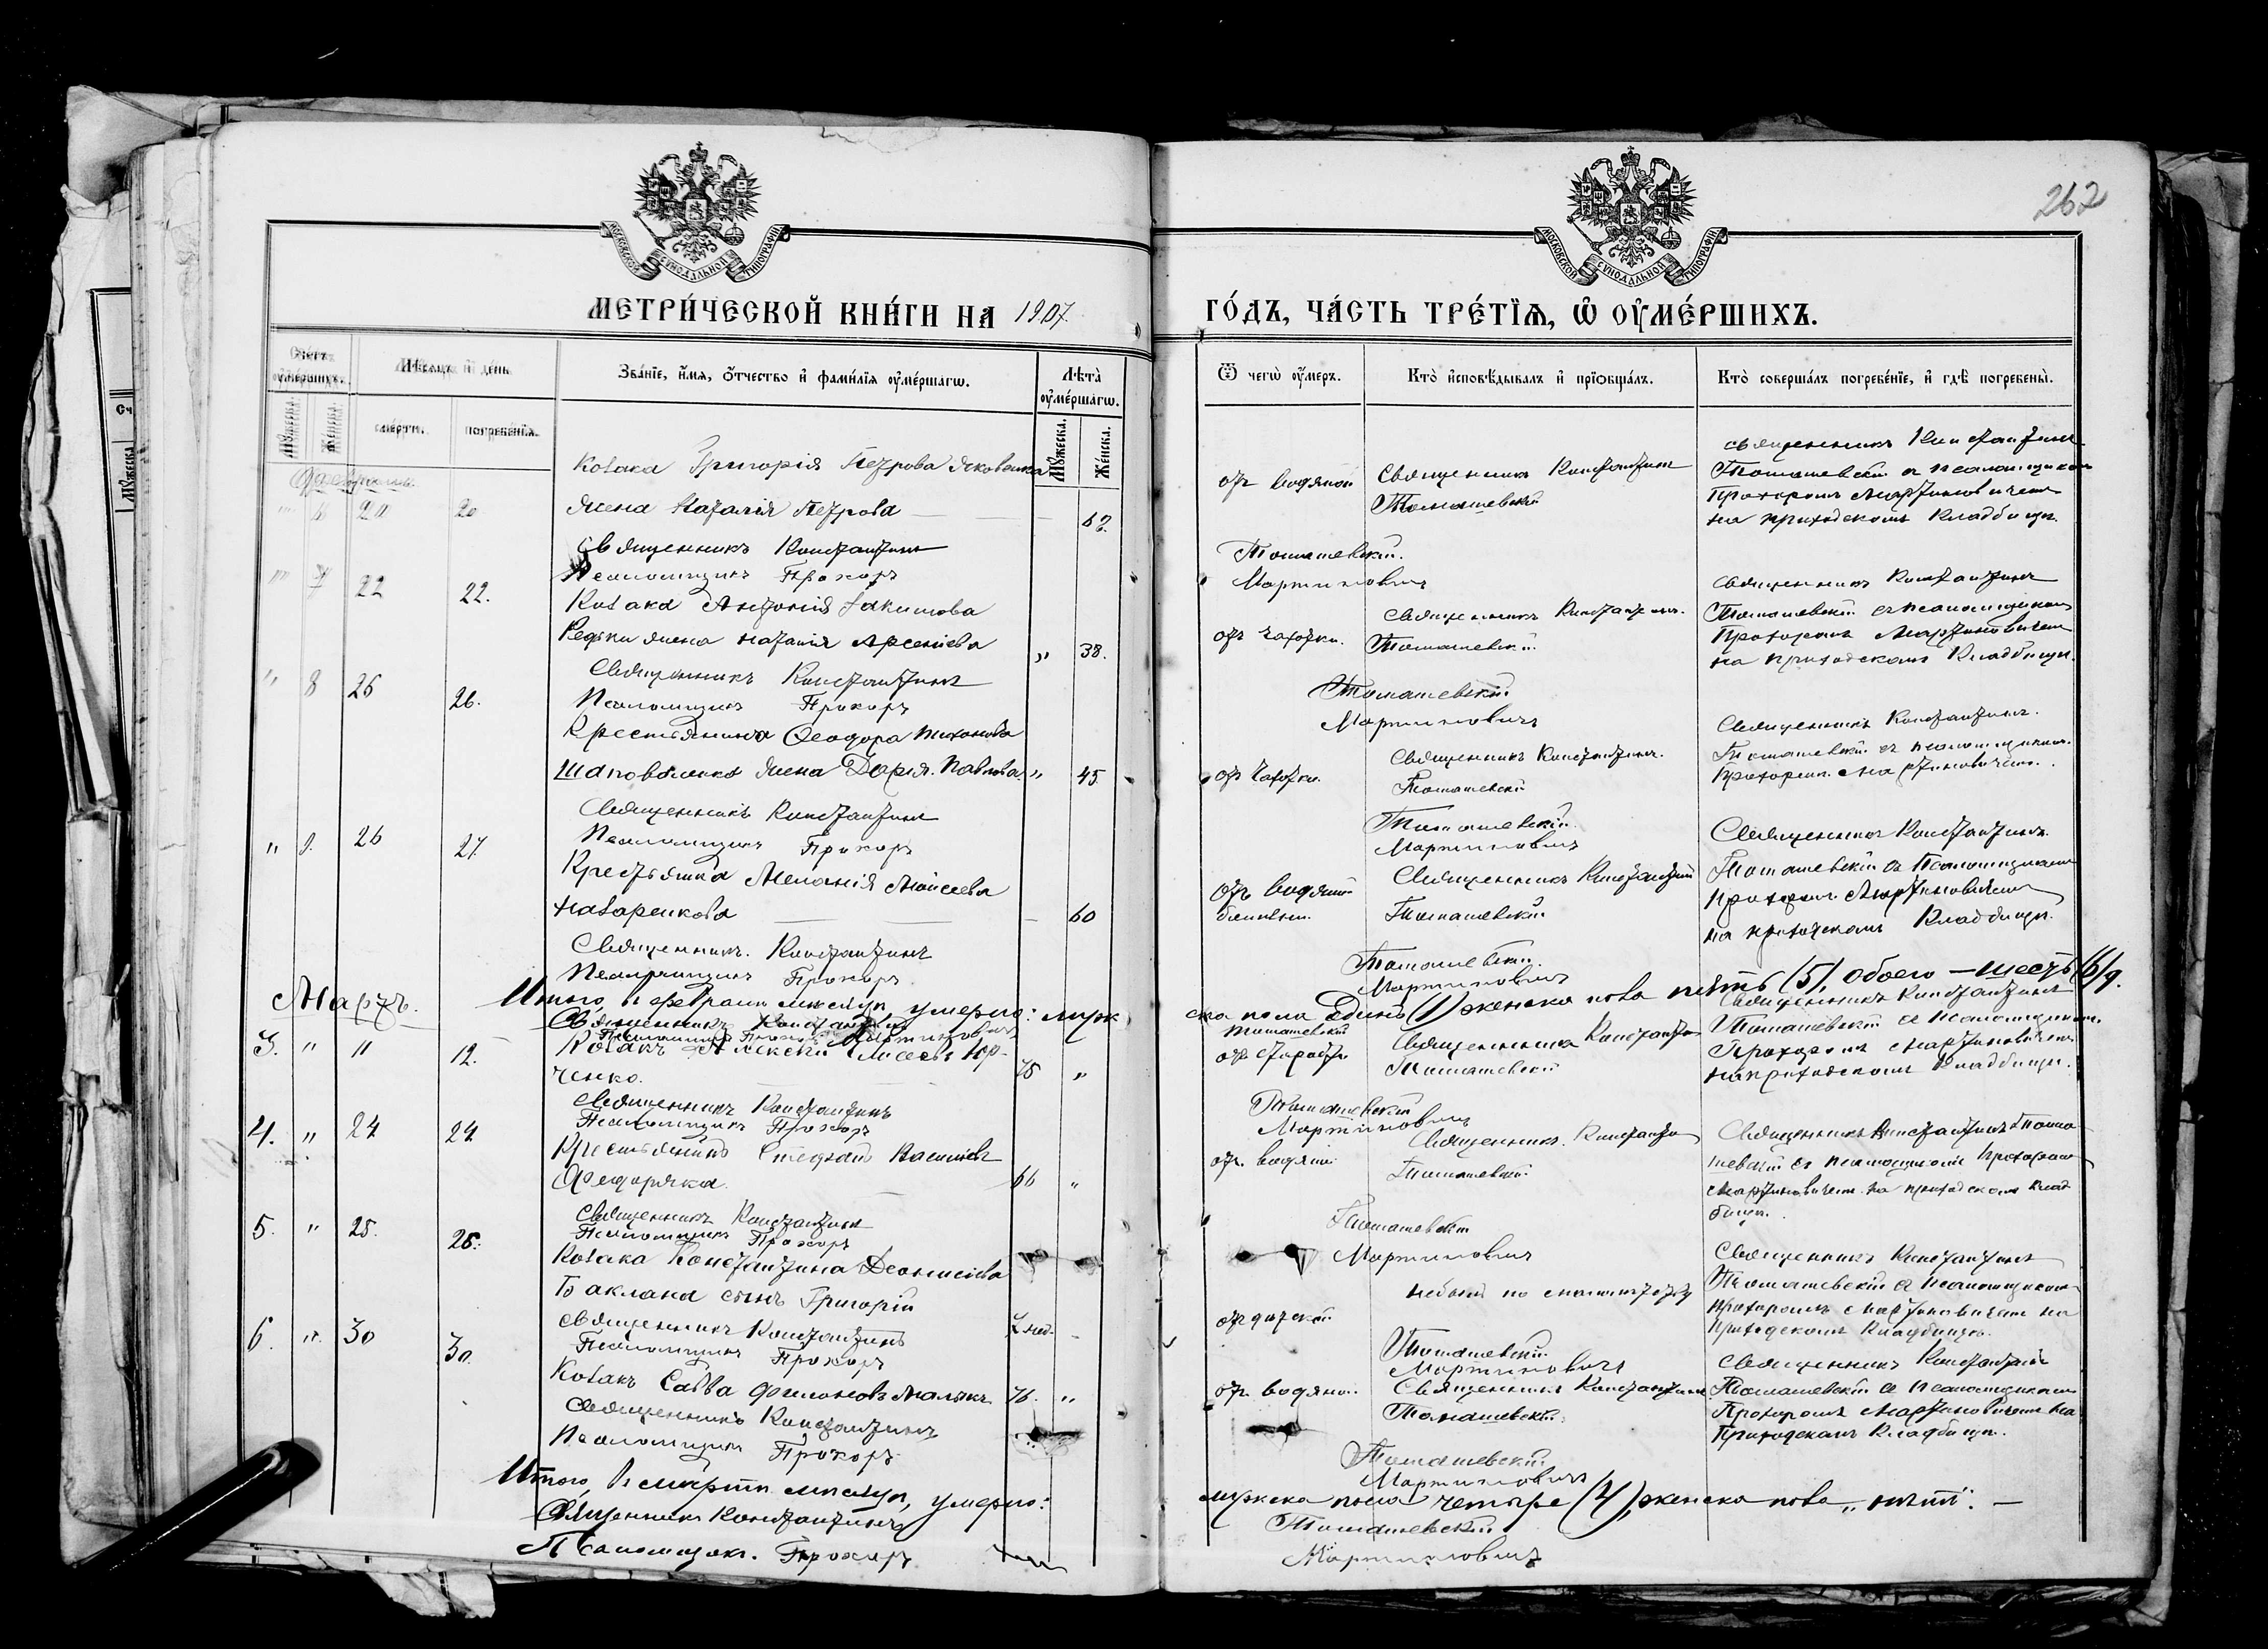 262
МОСКОВСКОЙ СѴНОДАЛЬНОЙ ТИПОГРАФІИ
МОСКОВСКОЙ СѴНОДАЛЬНОЙ ТИПОГРАФІИ
МЕТРИ́ЧЕСКОЙ КНИ́ГИ НА 1907 ГО́ДЪ, ЧА́СТЬ ТРЕ́ТЇѦ, Ѡ҆ ОУ҆МЕ́РШИХЪ.
Сче́тъ оу҆ме́ршихъ.
Мѣ́сяцъ и҆ де́нь
Зва́нїе, и҆́мѧ, ѻ҆́тчество и҆ фами́лїѧ оу҆ме́ршагѡ.
Лѣ́та оу҆ме́ршагѡ.
Ѿ чегѡ̀ оу҆́меръ.
Кто̀ и҆сповѣ́дывалъ и҆ прїобща́лъ.
Кто̀ соверша́лъ погребе́нїе, и҆ гдѣ̀ погребены̀.
Мꙋ́жеска.
Же́нска.
сме́рти.
погребе́нїѧ.
Мꙋ́жеска.
Же́нска.
Февраль
20
20
Козака Григорія Петрова Яковенка
жена Наталія Петрова
62.
отъ водяной
Священникъ Константинъ
Томашевскій
священникъ Константинъ
Томашевскій съ псаломщикомъ
Прохоромъ Мартиновичемъ
на приходскомъ Кладбищѣ.
Священникъ Константинъ Томашевскій.
Псаломщикъ Прохоръ Мартиновичъ
22
22.
Козака Антонія Іакимова
Редьки жена Наталія Арсеніева
" 38.
отъ чахотки.
Священникъ Константинъ.
Томашевскій.
Священникъ Константинъ
Томашевскій съ псаломщикомъ
Прохоромъ Мартиновичемъ
на приходскомъ Кладбищѣ.
Священникъ Константинъ Томашевскій
Псаломщикъ Прохоръ Мартиновичъ
" 8 26
26.
Крестьянина Ѳеодора Тихонова
Шаповаленка жена Дарія Павлова
" 45
отъ чахотки.
Священникъ Константинъ.
Томашевскій
Священникъ Константинъ.
Томашевскій съ псаломщикомъ.
Прохоромъ Мартиновичемъ.
Священникъ Константинъ Томашевскій.
Псаломщикъ Прохоръ Мартиновичъ
" 9. 26
27.
Крестьянка Меланія Моисеева
Назаренкова
60
отъ водяной
Священникъ Константинъ
Томашевскій
Священникъ Константинъ.
Томашевскій съ Псаломщикомъ
Прохоромъ Мартиновичемъ
на приходскомъ Кладбищѣ.
Священникъ. Константинъ Томашевскій.
Псаломщикъ Прохоръ Мартиновичъ
Итого, въ февралѣ мѣсяцѣ, умерло: муж
ска пола Единъ (1) женска пола пять (5), обоего — шесть (6)
Священникъ Константинъ Томашевскій
Псаломщикъ Прохоръ Мартиновичъ
Мартъ.
3. " 11
12.
Козакъ Алексей
ченко.
75 "
отъ старости
Священникъ Константинъ
Томашевскій
Священникъ Константинъ
Томашевскій съ псаломщикомъ.
Прохоромъ Мартиновичемъ
на приходскомъ Кладбищѣ.
Священникъ Константинъ Томашевскій
Псаломщикъ Прохоръ Мартиновичъ
4. " 24
24
Крестьянинъ Стефанъ Василіевъ
Федорячка.
66 "
отъ водяной
Священникъ. Константинъ
Томашевскій
Священникъ Константинъ Тома
шевскій съ псаломщикомъ Прохоромъ
Мартиновичемъ на приходскомъ Клад
бищѣ.
Священникъ Константинъ Томашевскій
Псаломщикъ Прохоръ Мартиновичъ
5. " 25.
25.
Козака Константина Діонисіева
Баклана сынъ Григорій
нед.
отъ
не былъ по
Священникъ Константинъ
Томашевскій съ псаломщикомъ
Прохоромъ Мартиновичемъ на
Приходскомъ Кладбищѣ.
Священникъ Константинъ Томашевскій
Псаломщикъ Прохоръ Мартиновичъ
6. " 30
30.
Козакъ Савва Филоновъ
76. "
отъ водяной.
Священникъ Константинъ
Томашевскій.
Священникъ Константинъ
Томашевскій съ псаломщикомъ
Прохоромъ Мартиновичемъ на
Приходскомъ Кладбищѣ.
Священникъ Константинъ Томашевскій
Псаломщикъ Прохоръ Мартиновичъ
Итого, въ мартѣ мѣсяцѣ, умерло: мужска пола четыре (4), женска пола „ нѣтъ". —
Священникъ Константинъ Томашевскій
Псаломщикъ. Прохоръ Мартиновичъ